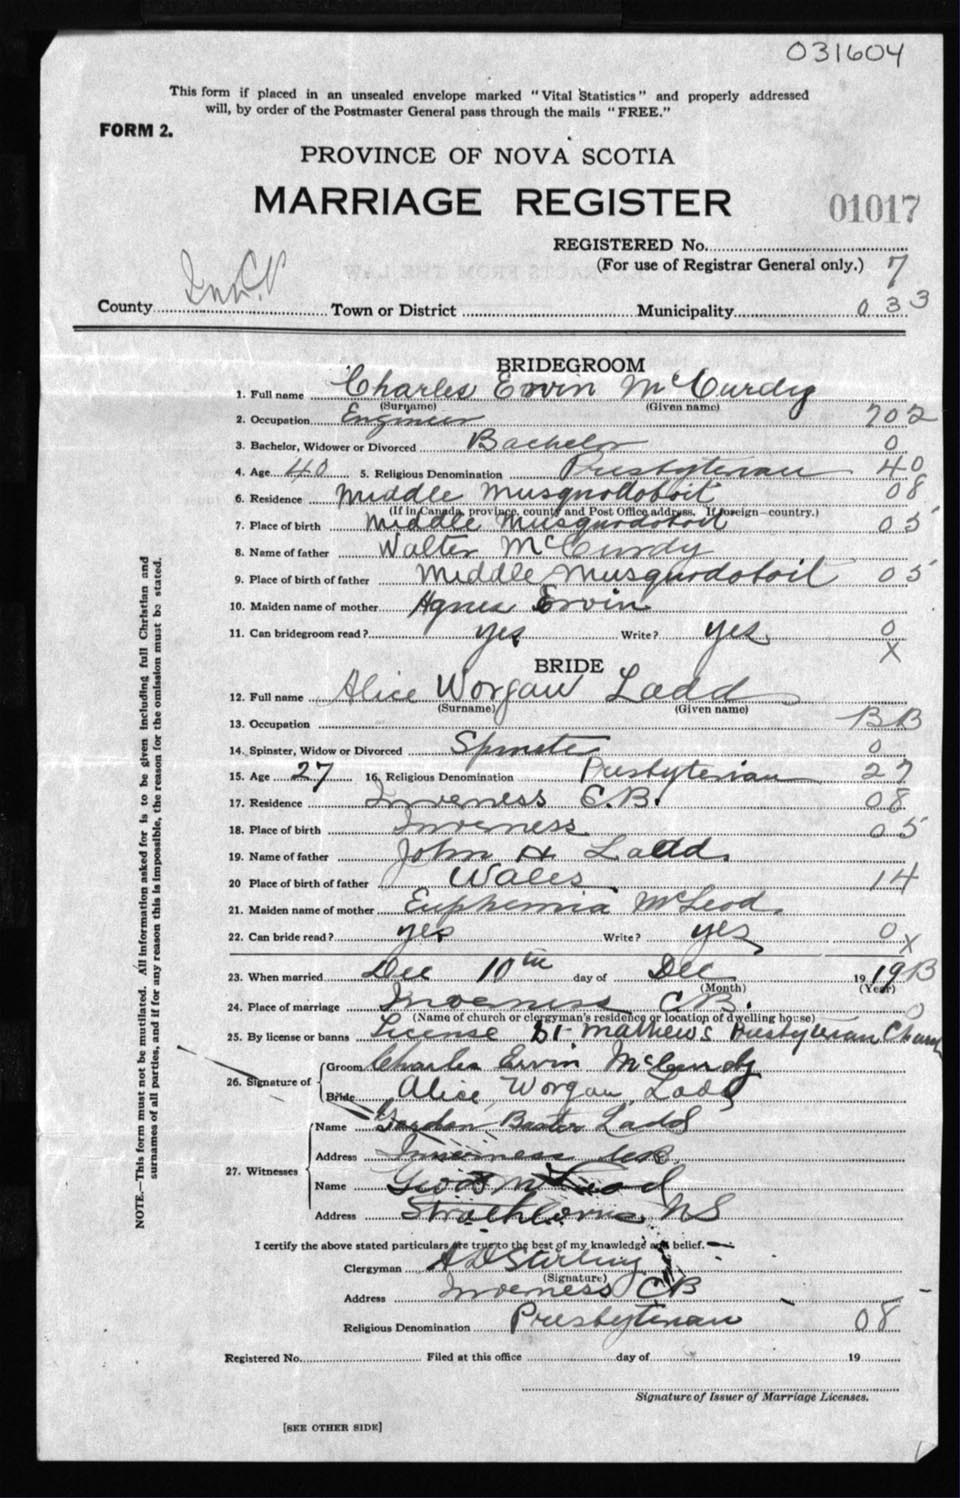 031604
This form if placed in an unsealed envelope marked "Vital Statistics" and properly addressed
will, by order of the Postmaster General pass through the mails "FREE."
FORM 2.
PROVINCE OF NOVA SCOTIA
MARRIAGE REGISTER 01017
REGISTERED No.
(For use of Registrar General only.) 7
County Town or District Municipality 033
BRIDEGROOM
1. Full name Charles Ervin McCurdy
(Surname) (Given name)
2. Occupation Engineer 702
3. Bachelor, Widower or Divorced Bachelor 0
4. Age 40 5. Religious Denomination Presbyterian 40
6. Residence Middle Musquodoboit 08
(If in Canada, province, county and Post Office address. If foreign—country.)
7. Place of birth Middle Musquodoboit 05
8. Name of father Walter McCurdy
9. Place of birth of father Middle Musquodoboit 05
10. Maiden name of mother Agnes Ervin
11. Can bridegroom read? yes Write? yes 0
X
BRIDE
12. Full name Alice Worgan Ladd
(Surname) (Given name)
13. Occupation BB
14. Spinster, Widow or Divorced Spinster 0
15. Age 27 16. Religious Denomination Presbyterian 27
17. Residence Inverness C.B. 08
18. Place of birth Inverness 05
19. Name of father John H Ladd
20 Place of birth of father Wales 14
21. Maiden name of mother Euphemia McLeod
22. Can bride read? yes Write? yes 0 X
23. When married Dec 10th day of Dec 19
(Month) (Year)
24. Place of marriage Inverness C.B. 0
(Name of church or clergyman's residence or location of dwelling house)
25. By license or banns License St Mathews Presbyterian Church
26. Signature of Groom Charles Ervin McCurdy
Bride Alice Worgan Ladd
27. Witnesses
Name Gordon Baxter Ladd
Address Inverness C.B.
Name
Address Strathlorne NS
I certify the above stated particulars are true to the best of my knowledge and belief.
Clergyman Sterling
(Signature)
Address Inverness CB
Religious Denomination Presbyterian 08
Registered No. Filed at this office day of 19
Signature of Issuer of Marriage Licenses.
[SEE OTHER SIDE]
NOTE.—This form must not be mutilated. All information asked for is to be given including full Christian and
surnames of all parties, and if for any reason this is impossible, the reason for the omission must be stated.